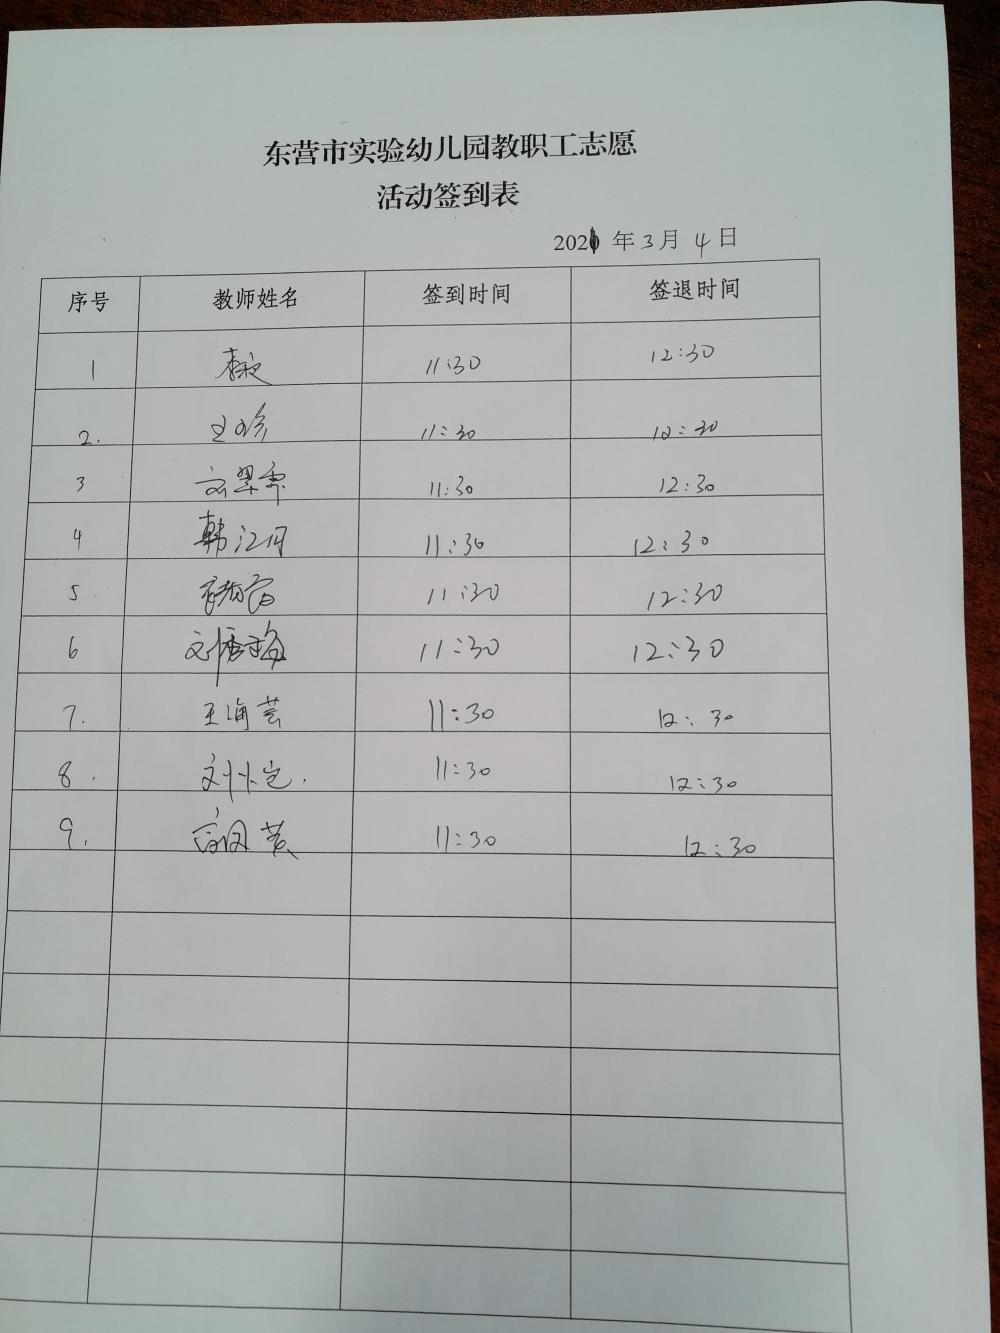 东营市实验幼儿园教职工志愿
活动签到表
2021 年 3 月 4 日
序号 教师姓名 签到时间 签退时间
1 11:30 12:30
2. 王珍 11:30 12:30
3 11:30 12:30
4 韩江月 11:30 12:30
5 11:30 12:30
6 11:30 12:30
7. 王海芸 11:30 12:30
8. 11:30 12:30
9. 11:30 12:30